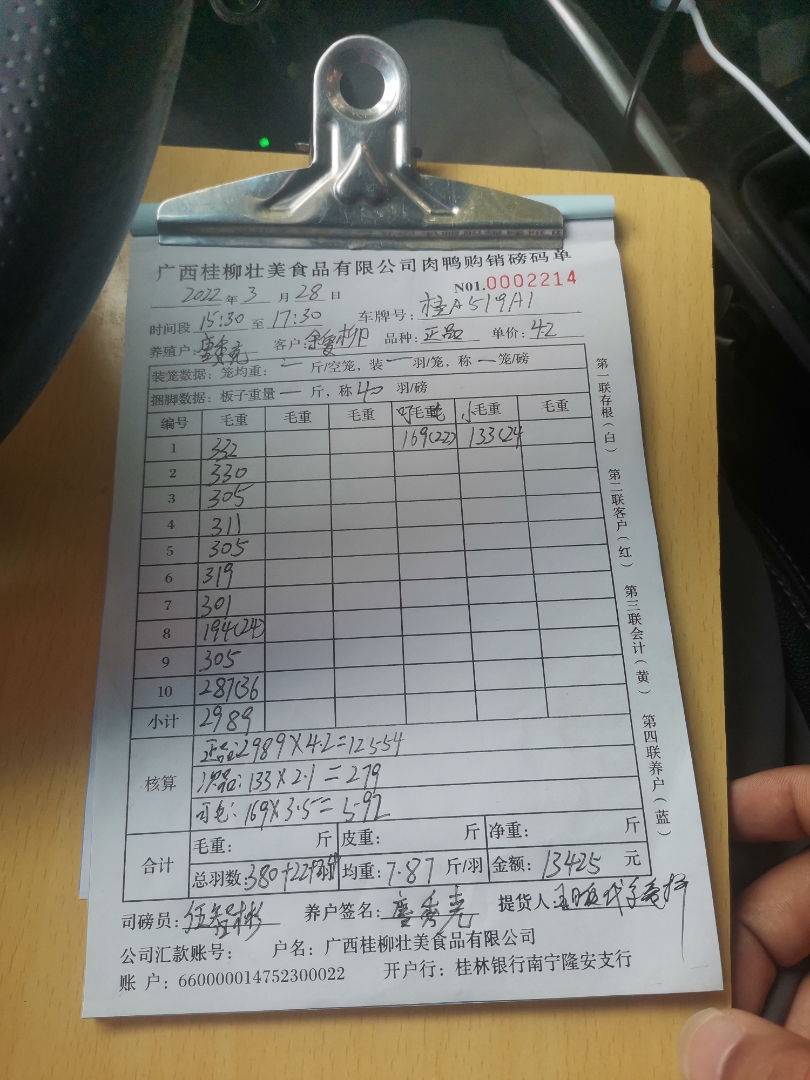 广西桂柳壮美食品有限公司肉鸭购销磅码单
N01.0002214
2022年3月28日
时间段 15:30 至 17:30 车牌号: 桂A519A1
养殖户: 客户: 品种: 正品 单价: 4.2
装笼数据: 笼均重: 一 斤/空笼, 装 一 羽/笼, 称 一 笼/磅
捆脚数据: 板子重量 一 斤, 称 40 羽/磅
编号 毛重 毛重 毛重 毛重 小毛重 毛重
1 332 169(22) 133(24
2 330
3 305
4 311
5 305
6 319
7 301
8 194(24)
9 305
10 287(36
小计 2989
核算 正品:2989×4.2=12554
次品:133×2.1=279
169×3.5=592
合计 毛重: 斤 皮重: 斤 净重: 斤
总羽数:380+22+ 羽 均重:7.87 斤/羽 金额: 13425 元
司磅员: 养户签名: 提货人:
公司汇款账号: 户名: 广西桂柳壮美食品有限公司
账 户: 660000014752300022 开户行: 桂林银行南宁隆安支行
第一联存根(白) 第二联客户(红) 第三联会计(黄) 第四联养户(蓝)